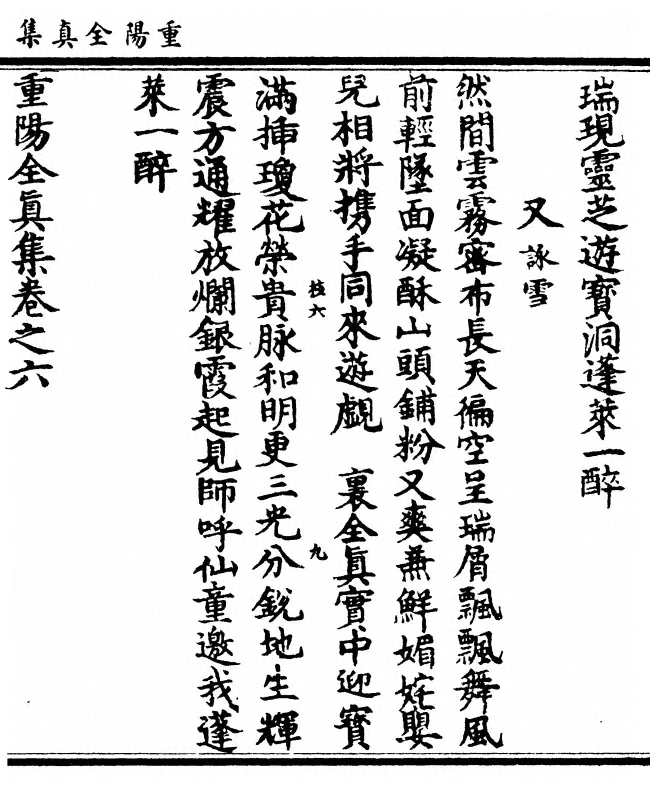 重陽全真集
瑞現靈芝遊寳洞蓬萊一醉
又 詠雪
然間雲霧密布長天徧空呈瑞屑飄飄舞風
前輕墜面凝酥山頭鋪粉又爽兼鮮媚姹嬰
兒相將携手同來遊戲 裏全眞實中迎寳
枝六 九
滿揷瓊花榮貴脉和明更三光分銳地生輝
震方通耀放爛銀霞起見師呼仙童邀我蓬
萊一醉
重陽全眞集卷之六